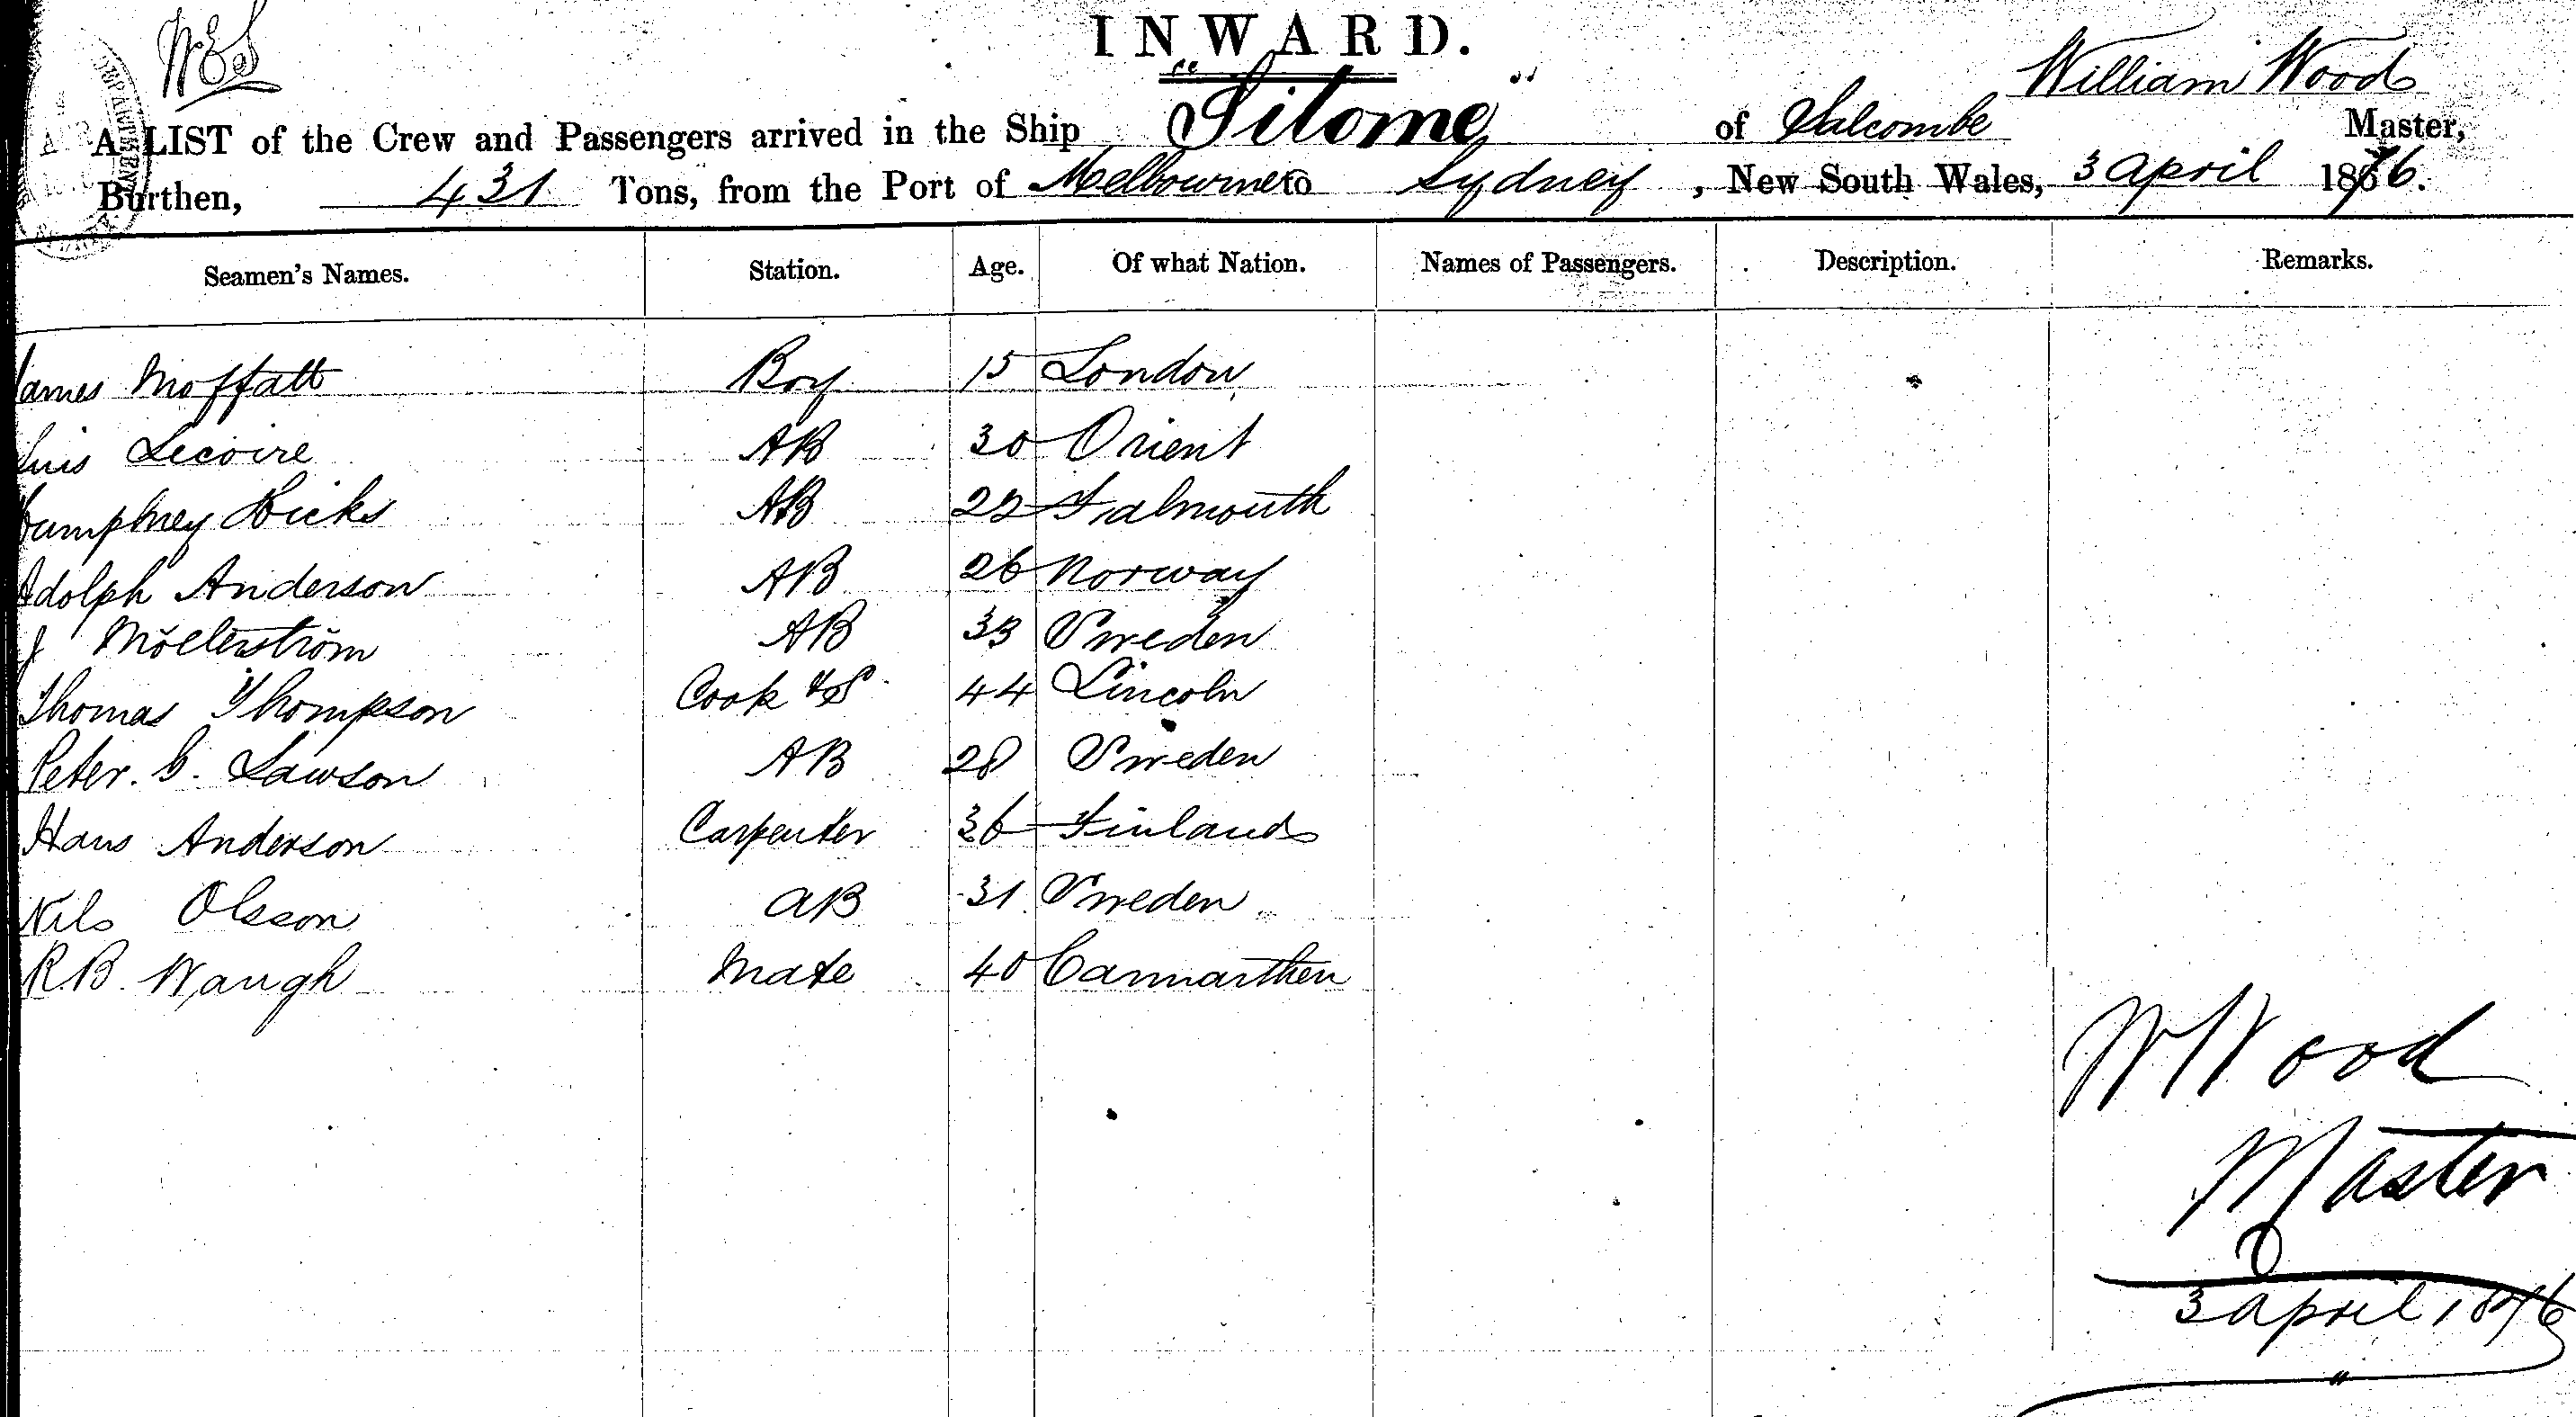 INWARD.
William Wood
A LIST of the Crew and Passengers arrived in the Ship "Sitome" of Salcombe Master,
Burthen, 431 Tons, from the Port of Melbourne to Sydney, New South Wales, 3 April 1876.
Seamen's Names. Station. Age. Of what Nation. Names of Passengers. Description. Remarks.
James Moffatt Boy 15 London
Luis Lecoire AB 30 Orient
Humphrey Hicks AB 22 Falmouth
Adolph Anderson AB 26 Norway
J Möllerström AB 33 Sweden
Thomas Thompson Cook & S 44 Lincoln
Peter. C. Lawson AB 28 Sweden
Hans Anderson Carpenter 36 Finland
Nils Olsson AB 31 Sweden
R.B. Waugh Mate 40 Carmarthen
W Wood
Master
3 April 1876